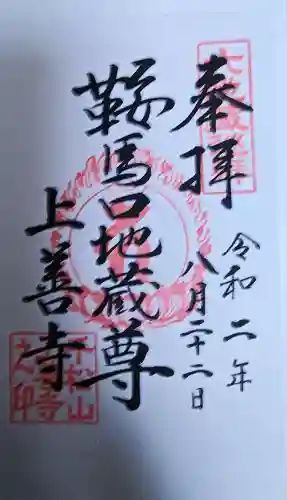 奉拝
令和二年
八月二十二日
鞍馬口地蔵尊
上善寺
千松山
之印